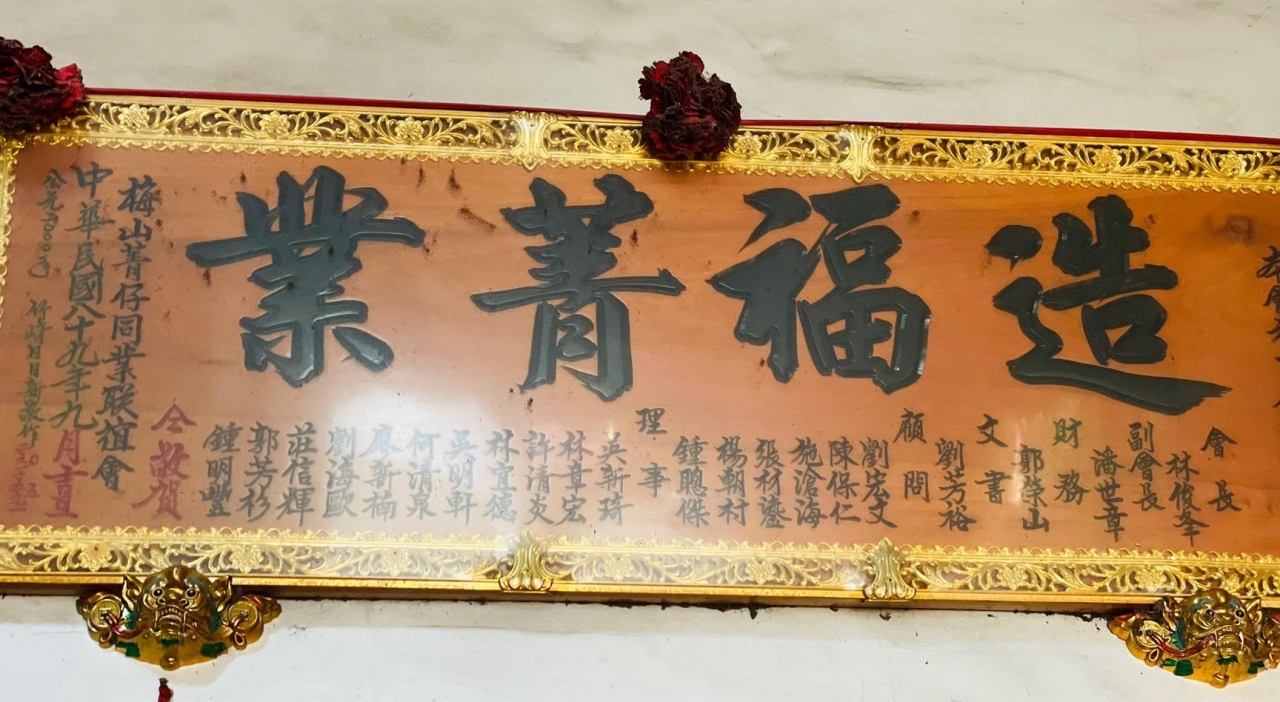 造福菁業
會長
林俊峯
副會長
潘世章
財務
郭榮山
文書
劉芳裕
顧問
劉宏文
陳保仁
施滄海
張材鎏
楊朝村
鍾聰傑
理事
吳新琦
林章宏
許清炎
林宜德
吳明軒
何清泉
廖新楠
劉海歐
莊信輝
郭芳杉
鍾明豐
仝敬賀
梅山菁仔同業联誼會
中華民國八十九年九月吉置